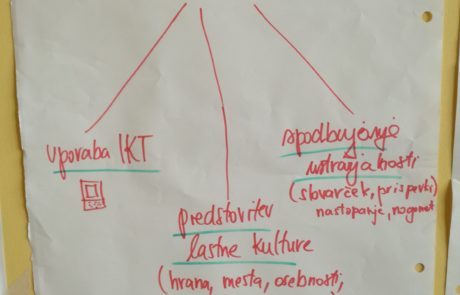 uporaba IKT
spodbujanje
ustvarjalnosti
(slovarček, prispevki,
nastopanje, nogomet
predstavitev
lastne kulture
(hrana, mesta, osebnosti,